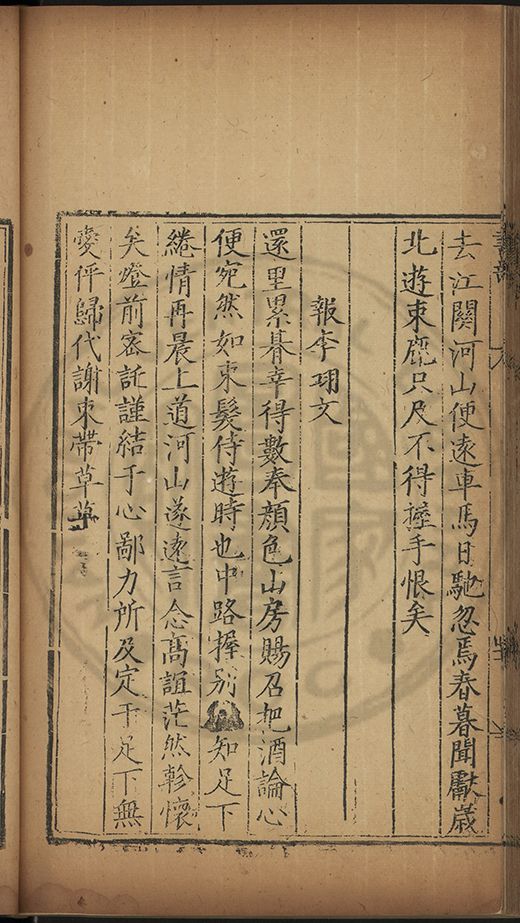 去江關河山便遠車馬日馳忽焉春暮聞獻歲
北遊束鹿只尺不得握手恨矣
報李翊文
還里累暮幸得數奉顏色山房賜召把酒論心
便宛然如束髮侍遊時也中路握別知足下
綣情再晨上道河山遂遠言念高誼茫然軫懷
矣燈前密託謹結于心鄙力所及定于足下無
愛伻歸代謝束帶草草